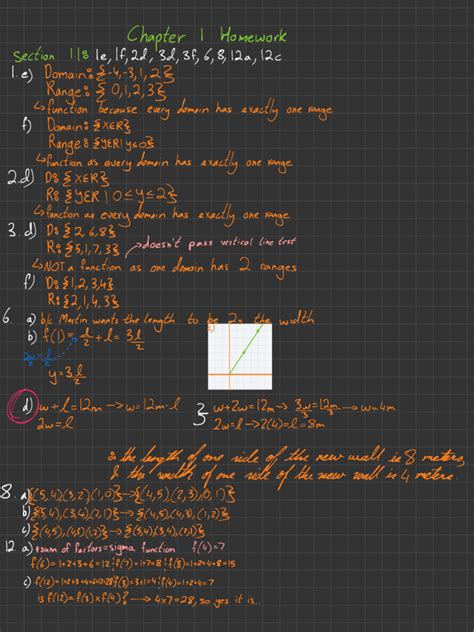 Chapter 1 Homework
Section 1.18 1e, 1f, 2d, 3d, 3f, 6, 8, 12a, 12c
1. e) Domain: {-4,-3,1,2}
Range: {0,1,2,3}
↳function because every domain has exactly one range
f) Domain: {XER}
Range: {yER| y≤0}
↳function as every domain has exactly one range
2.d) D: {XER}
R: {yER | 0≤y≤2}
↳function as every domain has exactly one range
3. d) D: {2,6,8}
R: {5,1,7,3} →doesn't pass vertical line test
↳NOT a function as one domain has 2 ranges
f) D: {1,2,3,4}
R: {2,1,4,3}
6. a) b/c Martin wants the length to be 2x the width
b) f(l)= l/2 + l = 3l/2 c)
2w=l
y=3l/2
d) w+l=12m → w=12m-l } w+2w=12m → 3w/3=12m/3 → w=4m
2w=l 2w=l → 2(4)=l=8m
∴ the length of one side of the new wall is 8 meters,
& the width of one side of the new wall is 4 meters.
8. a) {(5,4)(3,2)(1,0)}→{(4,5),(2,3),0,1)}
b) {(5,4),(3,4)(2,1)}→{(4,5),(4,3),(1,2)}
c) {(4,5),(4,3)(1,2)}→{(5,4)(3,4),(2,1)}
12. a) *sum of factors=sigma function f(4)=7
f(6)=1+2+3+6=12 f(7)=1+7=8 f(8)=1+2+4+8=15
c) f(12)=1+2+3+4+6+12=28 f(3)=3+1=4 f(4)=1+2+4=7
is f(12)=f(3)xf(4)? → 4x7=28, so yes it is...